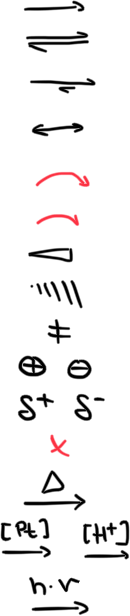 →
⇌
⇌
↔
≠
⊕ ⊖
δ+ δ-
×
Δ
[Pt] [H+]
h·v